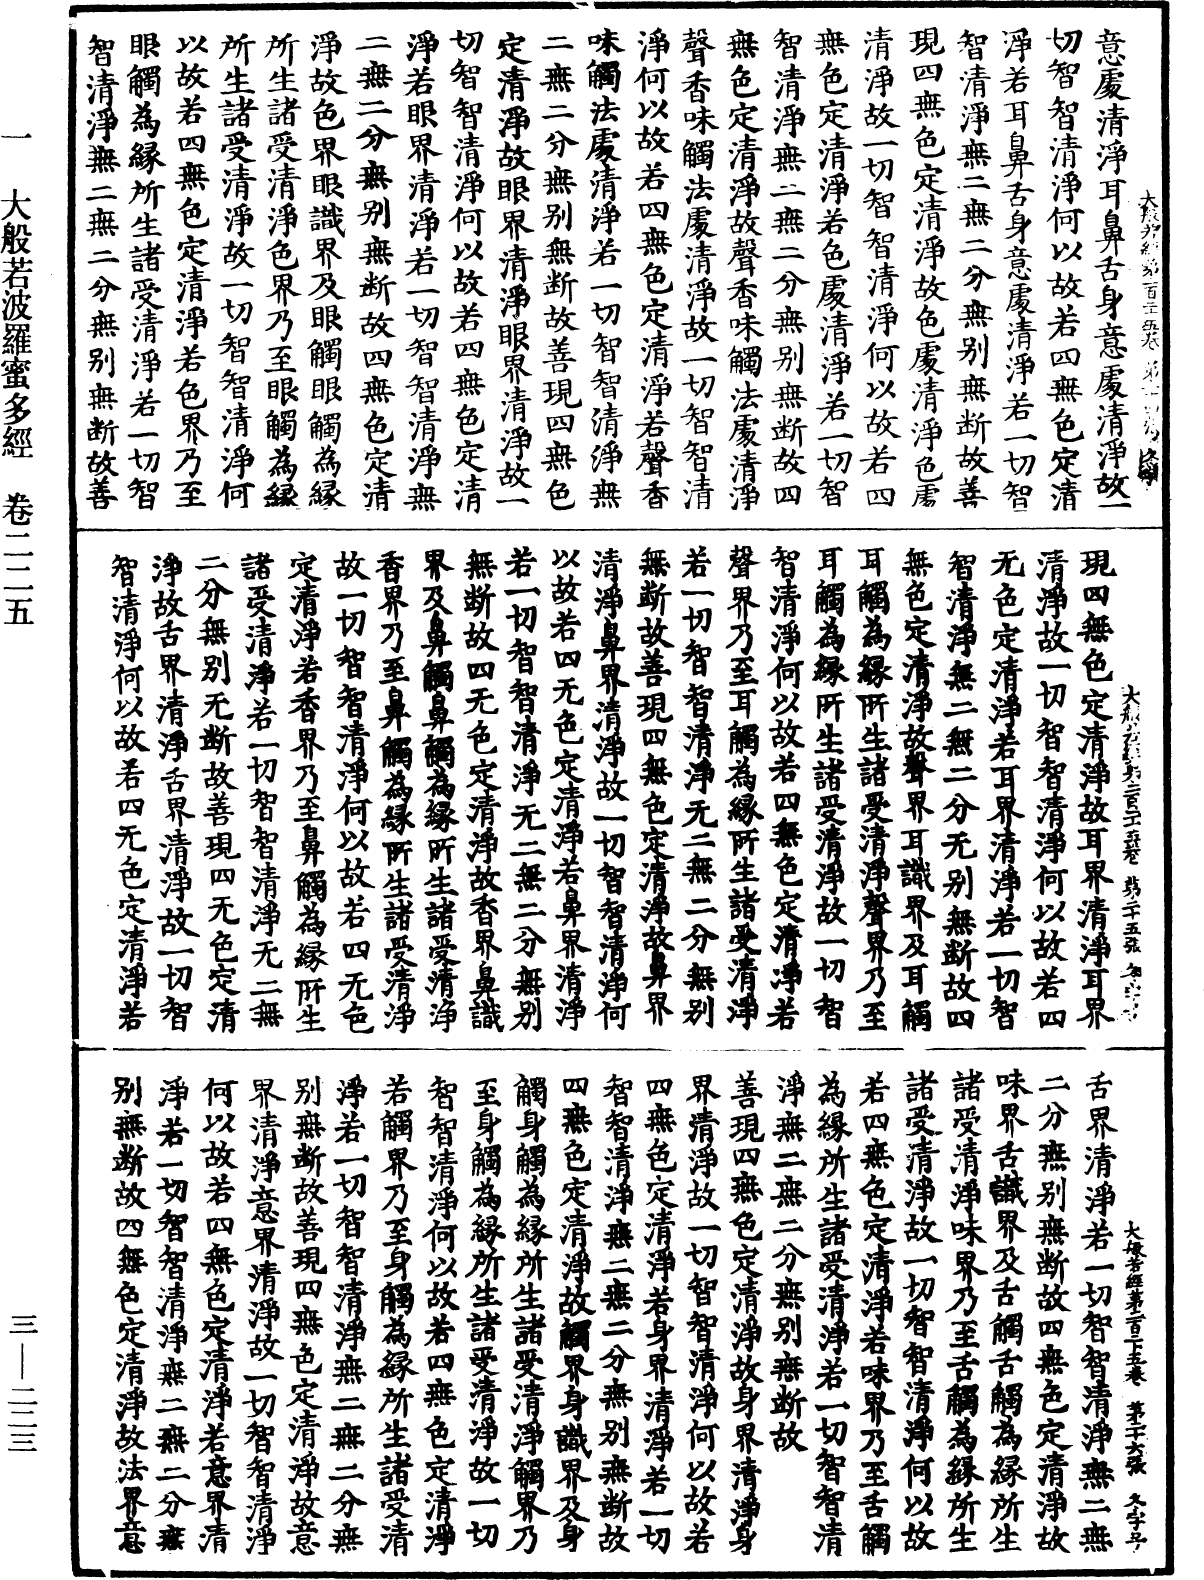 意處清淨耳鼻舌身意處清淨故一
切智智清淨何以故若四無色定清
淨若耳鼻舌身意處清淨若一切智
智清淨無二無二分無別無斷故善
現四無色定清淨故色處清淨色處
清淨故一切智智清淨何以故若四
無色定清淨若色處清淨若一切智
智清淨無二無二分無別無斷故四
無色定清淨故聲香味觸法處清淨
聲香味觸法處清淨故一切智智清
淨何以故若四無色定清淨若聲香
味觸法處清淨若一切智智清淨無
二無二分無別無斷故善現四無色
定清淨故眼界清淨眼界清淨故一
切智智清淨何以故若四無色定清
淨若眼界清淨若一切智智清淨無
二無二分無別無斷故四無色定清
淨故色界眼識界及眼觸眼觸為緣
所生諸受清淨色界乃至眼觸為緣
所生諸受清淨故一切智智清淨何
以故若四無色定清淨若色界乃至
眼觸為緣所生諸受清淨若一切智
智清淨無二無二分無別無斷故善
現四無色定清淨故耳界清淨耳界
清淨故一切智智清淨何以故若四
无色定清淨若耳界清淨若一切智
智清淨無二無二分无別無斷故四
無色定清淨故聲界耳識界及耳觸
耳觸為緣所生諸受清淨聲界乃至
耳觸為緣所生諸受清淨故一切智
智清淨何以故若四無色定清淨若
聲界乃至耳觸為緣所生諸受清淨
若一切智智清淨无二無二分無別
無斷故善現四無色定清淨故鼻界
清淨鼻界清淨故一切智智清淨何
以故若四无色定清淨若鼻界清淨
若一切智智清淨无二無二分無別
無斷故四无色定清淨故香界鼻識
界及鼻觸鼻觸為緣所生諸受清淨
香界乃至鼻觸為緣所生諸受清淨
故一切智智清淨何以故若四无色
定清淨若香界乃至鼻觸為緣所生
諸受清淨若一切智智清淨无二無
二分無別无斷故善現四无色定清
淨故舌界清淨舌界清淨故一切智
智清淨何以故若四无色定清淨若
大般若經第二百二十五卷 第二十六張 冬字号
舌界清淨若一切智智清淨無二無
二分無別無斷故四無色定清淨故
味界舌識界及舌觸舌觸為緣所生
諸受清淨味界乃至舌觸為緣所生
諸受清淨故一切智智清淨何以故
若四無色定清淨若味界乃至舌觸
為緣所生諸受清淨若一切智智清
淨無二無二分無別無斷故
善現四無色定清淨故身界清淨身
界清淨故一切智智清淨何以故若
四無色定清淨若身界清淨若一切
智智清淨無二無二分無別無斷故
四無色定清淨故觸界身識界及身
觸身觸為緣所生諸受清淨觸界乃
至身觸為緣所生諸受清淨故一切
智智清淨何以故若四無色定清淨
若觸界乃至身觸為緣所生諸受清
淨若一切智智清淨無二無二分無
別無斷故善現四無色定清淨故意
界清淨意界清淨故一切智智清淨
何以故若四無色定清淨若意界清
淨若一切智智清淨無二無二分無
別無斷故四無色定清淨故法界意
一 大般若波羅蜜多經 卷二二五
三—二二三